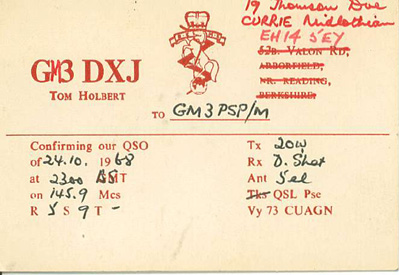 19 Thomson Dve
CURRIE Midlothian
EH14 5EY
52b. VALON RD,
ARBORFIELD,
NR. READING,
BERKSHIRE.
GM3 DXJ
TOM HOLBERT
TO GM3PSP/M
Confirming our QSO
of 24.10. 1968
at 2300 MT
on 145.9 Mcs
R 5 S 9 T -
Tx 20W
Rx D. Shet
Ant 5el
Tks QSL Pse
Vy 73 CUAGN